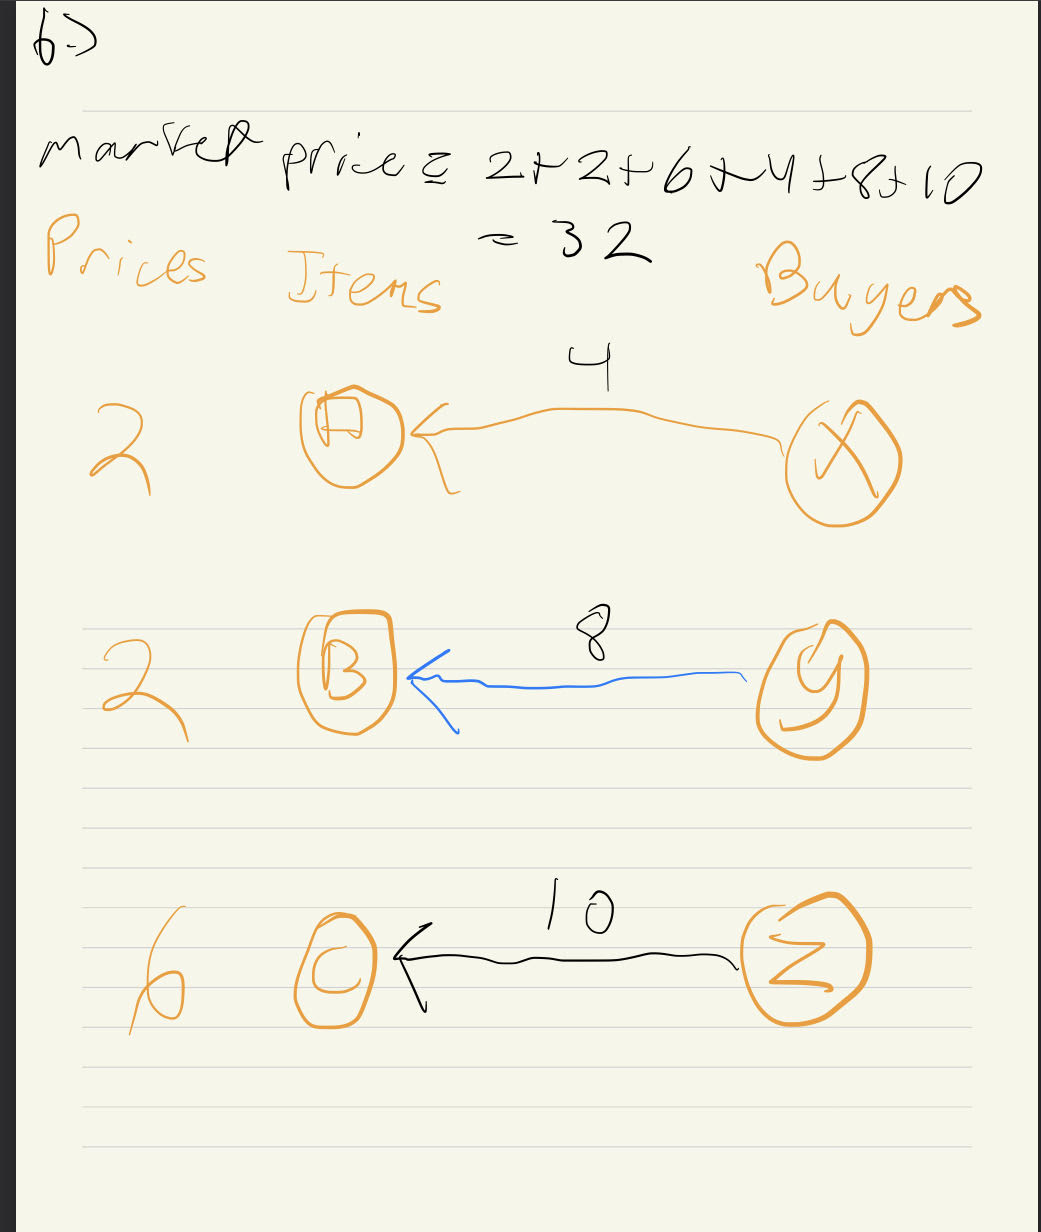 b>
market price = 2+2+6+4+8+10
= 32
Prices Items Buyers
4
2 A X
8
2 B y
10
6 C Z